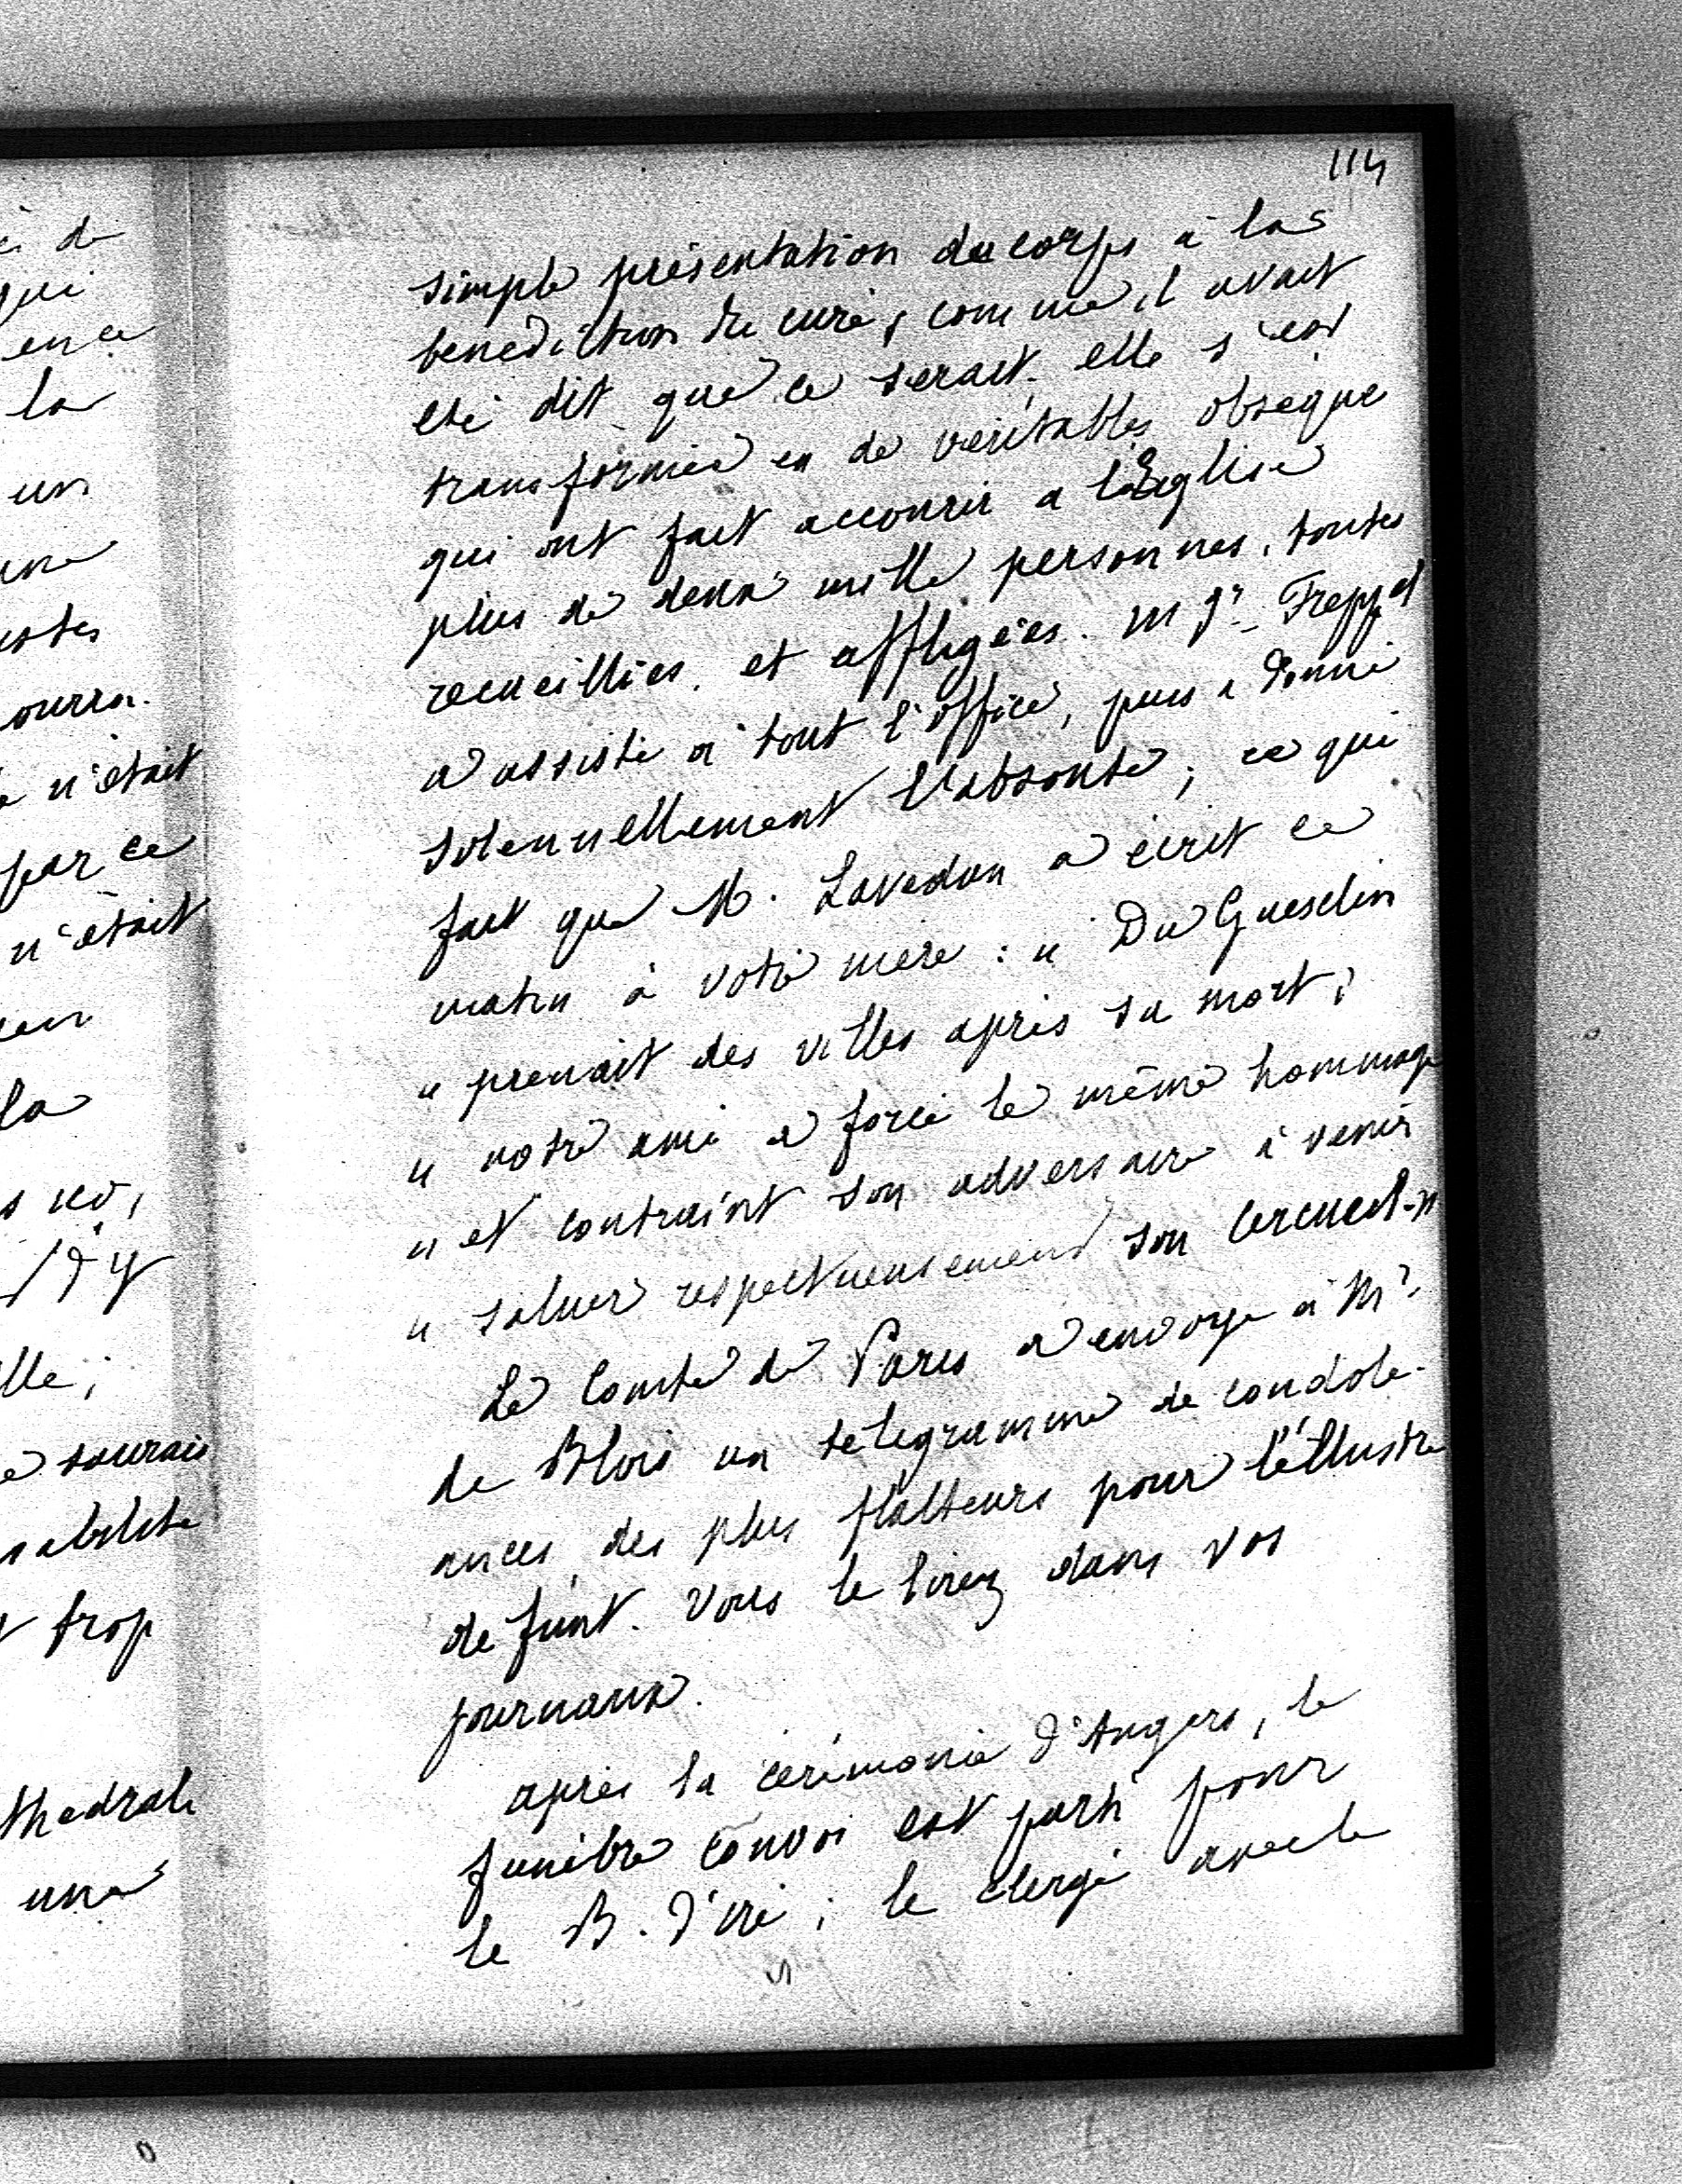 114
simple présentation du corps à la
benediction du curé, comme il avait
été dit que ce serait, elle s'est
transformée en de véritables obseque
qui ont fait accourir a l'Eglise
plus de deux mille personnes, toutes
recueillies, et affligées. Mgr Freppel
a assisté à tout l'office, puis a donné
solennellement l'absoute; ce qui
fait que M. Lavedan a écrit ce
matin à votre mère : " Du Guesclin
" prenait des villes après sa mort;
" notre ami a forcé le même hommage
" et contraint son adversaire à venir
" saluer respectueusement son cercueil. "
Le Comte de Paris a envoyé à Mr
de Blois un télégramme de condolé-
ances, des plus flatteurs pour l'illustre
defunt. Vous le lirez dans vos
journaux.
après la cérémonie d'Angers, le
funèbre convoi est parti pour
le B. d'Iré; le clergé avec le
è de
qui
ence
la
un
une
ourra.
n'était
par ce
n'était
la
lle;
saurais
trop
thedrale
une